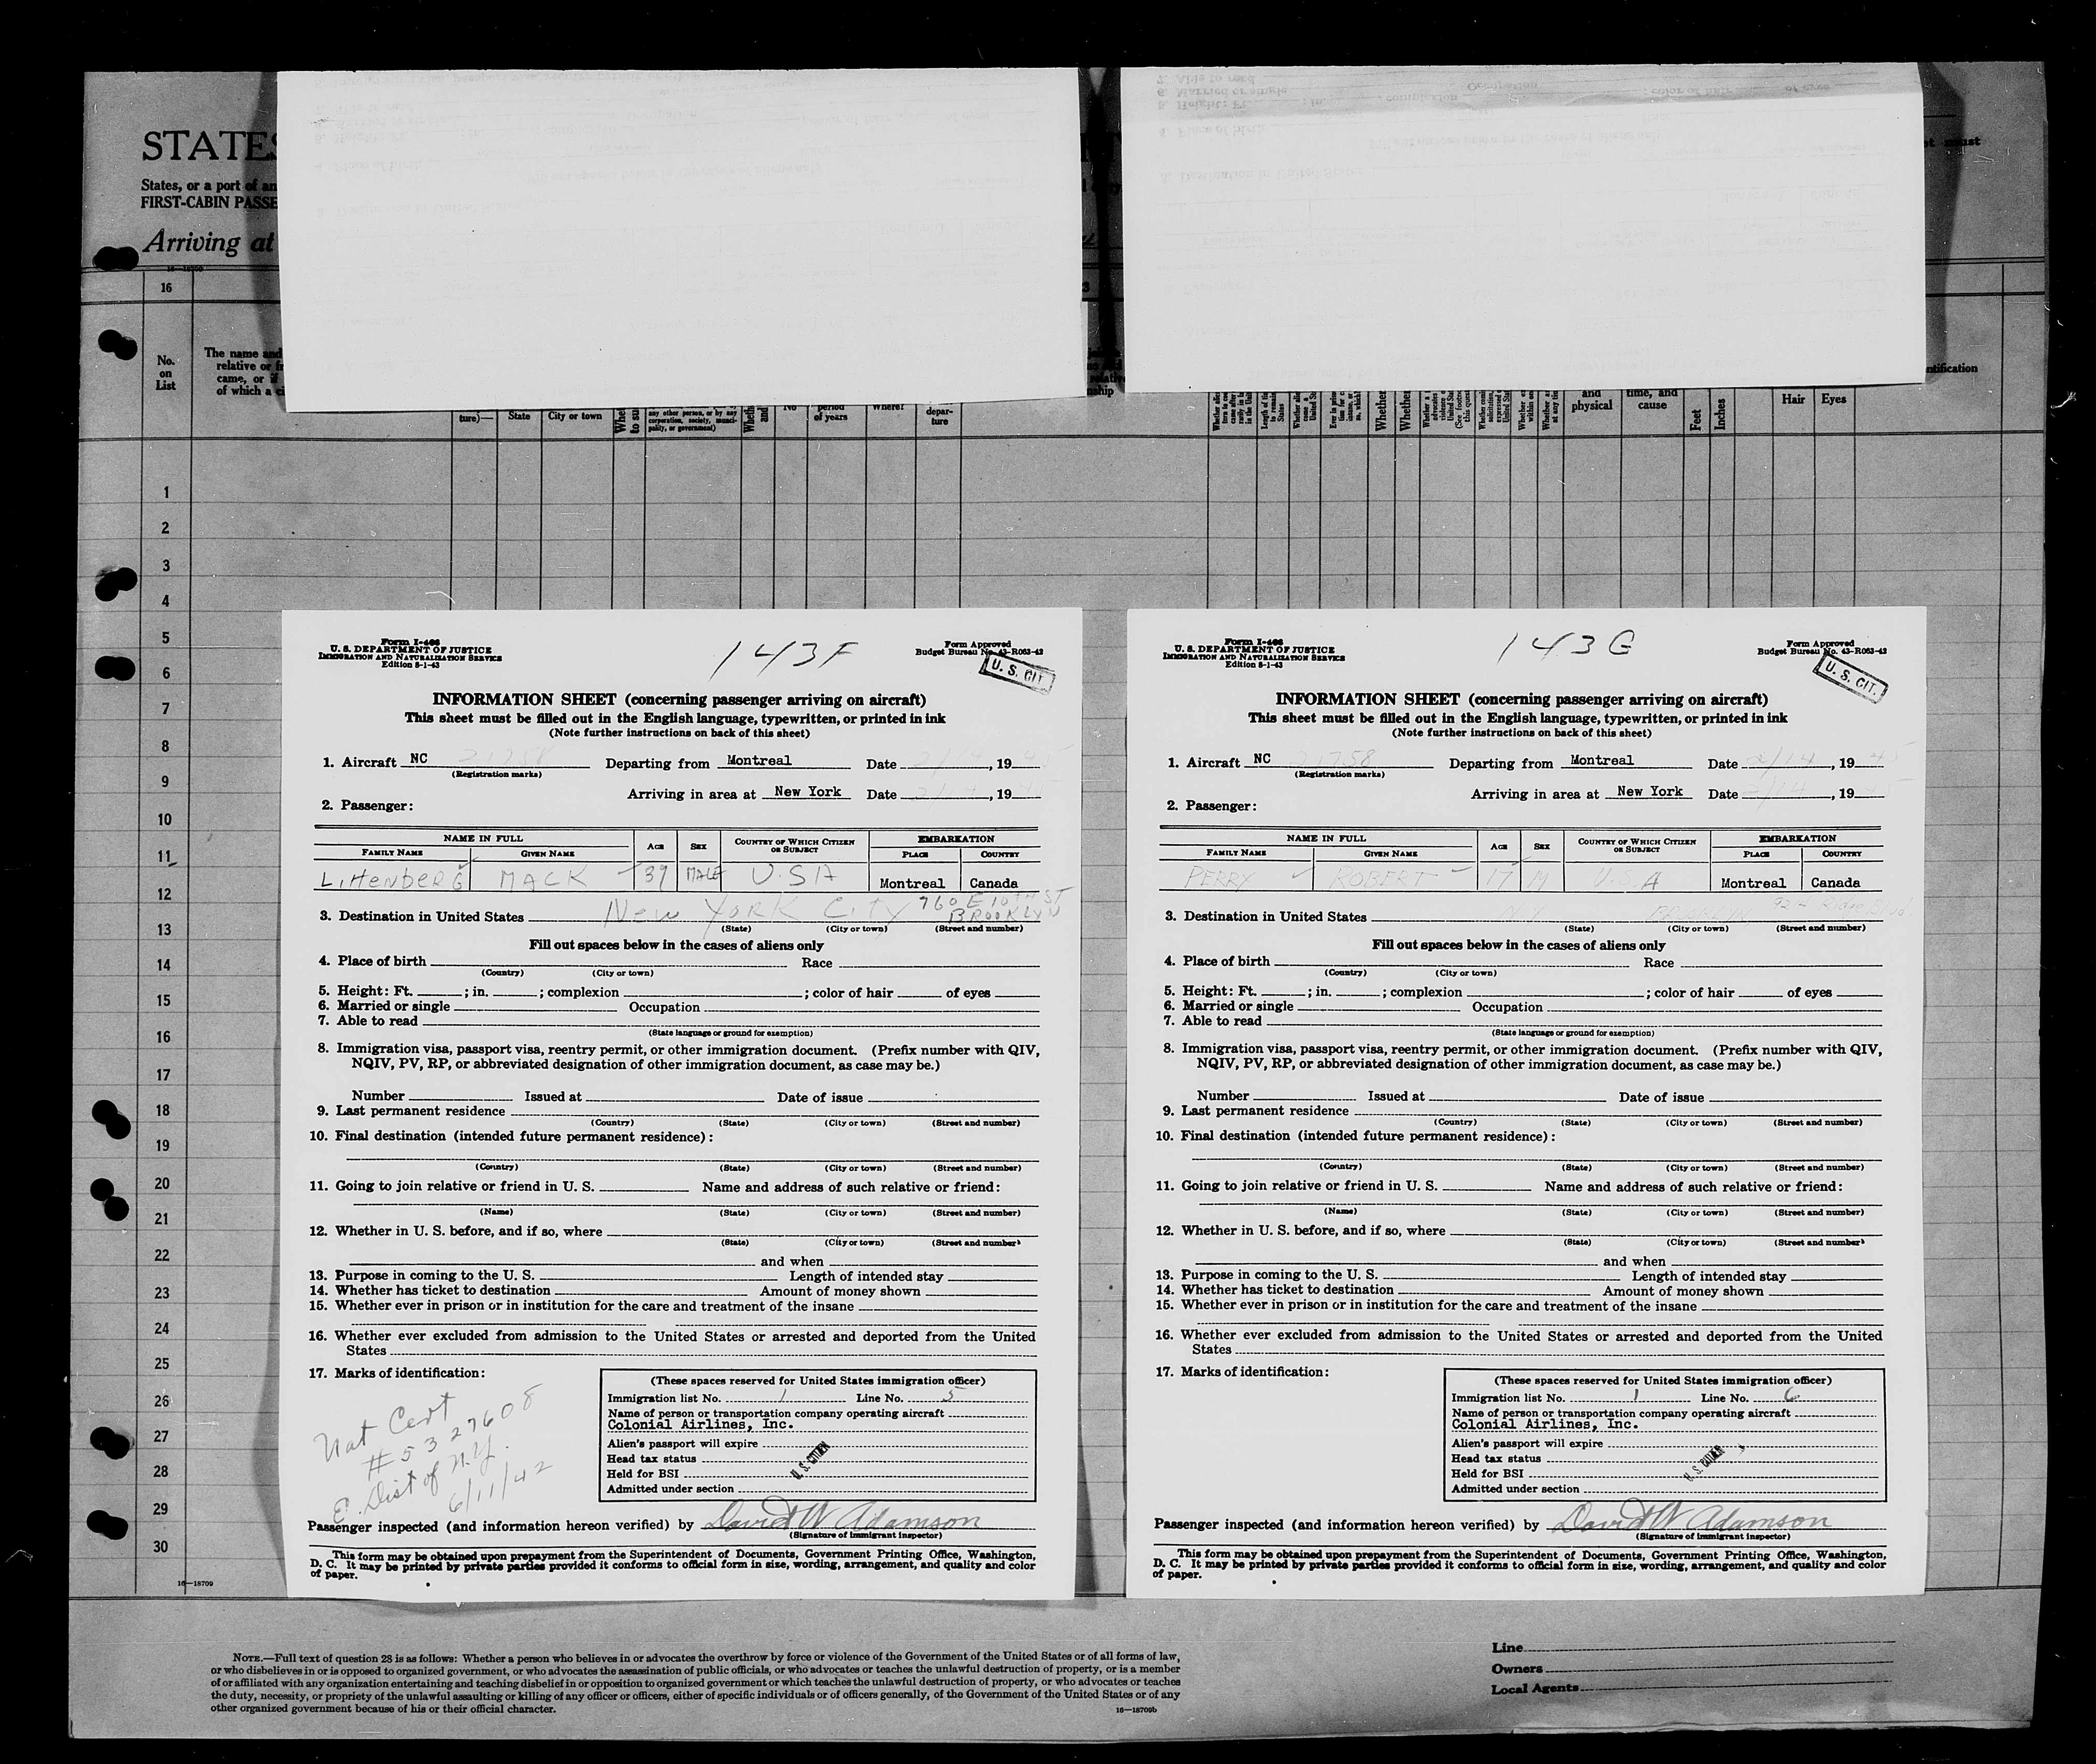 STATES
States, or a port of an
FIRST-CABIN PASSE
Arriving at
16
No.
on
List
The name and
relative or
came, or if
of which a
ture)—
State
City or town
any other person, or by any
corporation, society, munici-
pality, or government)
No
period
of years
Where?
depar-
ture
and
physical
time, and
cause
Feet
Inches
Hair
Eyes
1
2
3
4
5
6
7
8
9
10
11
12
13
14
15
16
17
18
19
20
21
22
23
24
25
26
27
28
29
30
16—18709
Form I-466
U. S. DEPARTMENT OF JUSTICE
IMMIGRATION AND NATURALIZATION SERVICE
Edition 8-1-43
143F
Form Approved
Budget Bureau No. 43-R063-42
U. S. CIT.
INFORMATION SHEET (concerning passenger arriving on aircraft)
This sheet must be filled out in the English language, typewritten, or printed in ink
(Note further instructions on back of this sheet)
1. Aircraft NC 21758 Departing from Montreal Date , 19
(Registration marks)
Arriving in area at New York Date , 19
2. Passenger:
NAME IN FULL AGE SEX COUNTRY OF WHICH CITIZEN OR SUBJECT EMBARKATION
FAMILY NAME GIVEN NAME PLACE COUNTRY
LittenberG MACK 39 MALE U.S.A Montreal Canada
3. Destination in United States New York City 960 E 10TH ST BROOKLYN
(State) (City or town) (Street and number)
Fill out spaces below in the cases of aliens only
4. Place of birth Race
(Country) (City or town)
5. Height: Ft. ; in. ; complexion ; color of hair of eyes
6. Married or single Occupation
7. Able to read
(State language or ground for exemption)
8. Immigration visa, passport visa, reentry permit, or other immigration document. (Prefix number with QIV,
NQIV, PV, RP, or abbreviated designation of other immigration document, as case may be.)
Number Issued at Date of issue
9. Last permanent residence
(Country) (State) (City or town) (Street and number)
10. Final destination (intended future permanent residence):
(Country) (State) (City or town) (Street and number)
11. Going to join relative or friend in U. S. Name and address of such relative or friend:
(Name) (State) (City or town) (Street and number)
12. Whether in U. S. before, and if so, where
(State) (City or town) (Street and number)
and when
13. Purpose in coming to the U. S. Length of intended stay
14. Whether has ticket to destination Amount of money shown
15. Whether ever in prison or in institution for the care and treatment of the insane
16. Whether ever excluded from admission to the United States or arrested and deported from the United
States
17. Marks of identification:
Nat Cert
#5327608
E. Dist of N.Y.
6/11/42
(These spaces reserved for United States immigration officer)
Immigration list No. 1 Line No. 5
Name of person or transportation company operating aircraft
Colonial Airlines, Inc.
Alien's passport will expire
Head tax status
Held for BSI
Admitted under section
U. S. CITIZEN
Passenger inspected (and information hereon verified) by David W Adamson
(Signature of immigrant inspector)
This form may be obtained upon prepayment from the Superintendent of Documents, Government Printing Office, Washington,
D. C. It may be printed by private parties provided it conforms to official form in size, wording, arrangement, and quality and color
of paper.
Form I-466
U. S. DEPARTMENT OF JUSTICE
IMMIGRATION AND NATURALIZATION SERVICE
Edition 8-1-43
143G
Form Approved
Budget Bureau No. 43-R063-42
U. S. CIT.
INFORMATION SHEET (concerning passenger arriving on aircraft)
This sheet must be filled out in the English language, typewritten, or printed in ink
(Note further instructions on back of this sheet)
1. Aircraft NC 21758 Departing from Montreal Date 2/14 , 1945
(Registration marks)
Arriving in area at New York Date 2/14 , 19
2. Passenger:
NAME IN FULL AGE SEX COUNTRY OF WHICH CITIZEN OR SUBJECT EMBARKATION
FAMILY NAME GIVEN NAME PLACE COUNTRY
PERRY ROBERT 17 M U.S.A Montreal Canada
3. Destination in United States N.Y. BROOKLYN
(State) (City or town) (Street and number)
Fill out spaces below in the cases of aliens only
4. Place of birth Race
(Country) (City or town)
5. Height: Ft. ; in. ; complexion ; color of hair of eyes
6. Married or single Occupation
7. Able to read
(State language or ground for exemption)
8. Immigration visa, passport visa, reentry permit, or other immigration document. (Prefix number with QIV,
NQIV, PV, RP, or abbreviated designation of other immigration document, as case may be.)
Number Issued at Date of issue
9. Last permanent residence
(Country) (State) (City or town) (Street and number)
10. Final destination (intended future permanent residence):
(Country) (State) (City or town) (Street and number)
11. Going to join relative or friend in U. S. Name and address of such relative or friend:
(Name) (State) (City or town) (Street and number)
12. Whether in U. S. before, and if so, where
(State) (City or town) (Street and number)
and when
13. Purpose in coming to the U. S. Length of intended stay
14. Whether has ticket to destination Amount of money shown
15. Whether ever in prison or in institution for the care and treatment of the insane
16. Whether ever excluded from admission to the United States or arrested and deported from the United
States
17. Marks of identification:
(These spaces reserved for United States immigration officer)
Immigration list No. 1 Line No. 6
Name of person or transportation company operating aircraft
Colonial Airlines, Inc.
Alien's passport will expire
Head tax status
Held for BSI
Admitted under section
U. S. CITIZEN
Passenger inspected (and information hereon verified) by David W Adamson
(Signature of immigrant inspector)
This form may be obtained upon prepayment from the Superintendent of Documents, Government Printing Office, Washington,
D. C. It may be printed by private parties provided it conforms to official form in size, wording, arrangement, and quality and color
of paper.
NOTE.—Full text of question 28 is as follows: Whether a person who believes in or advocates the overthrow by force or violence of the Government of the United States or of all forms of law,
or who disbelieves in or is opposed to organized government, or who advocates the assassination of public officials, or who advocates or teaches the unlawful destruction of property, or is a member
of or affiliated with any organization entertaining and teaching disbelief in or opposition to organized government or which teaches the unlawful destruction of property, or who advocates or teaches
the duty, necessity, or propriety of the unlawful assaulting or killing of any officer or officers, either of specific individuals or of officers generally, of the Government of the United States or of any
other organized government because of his or their official character.
16—18709b
Line
Owners
Local Agents